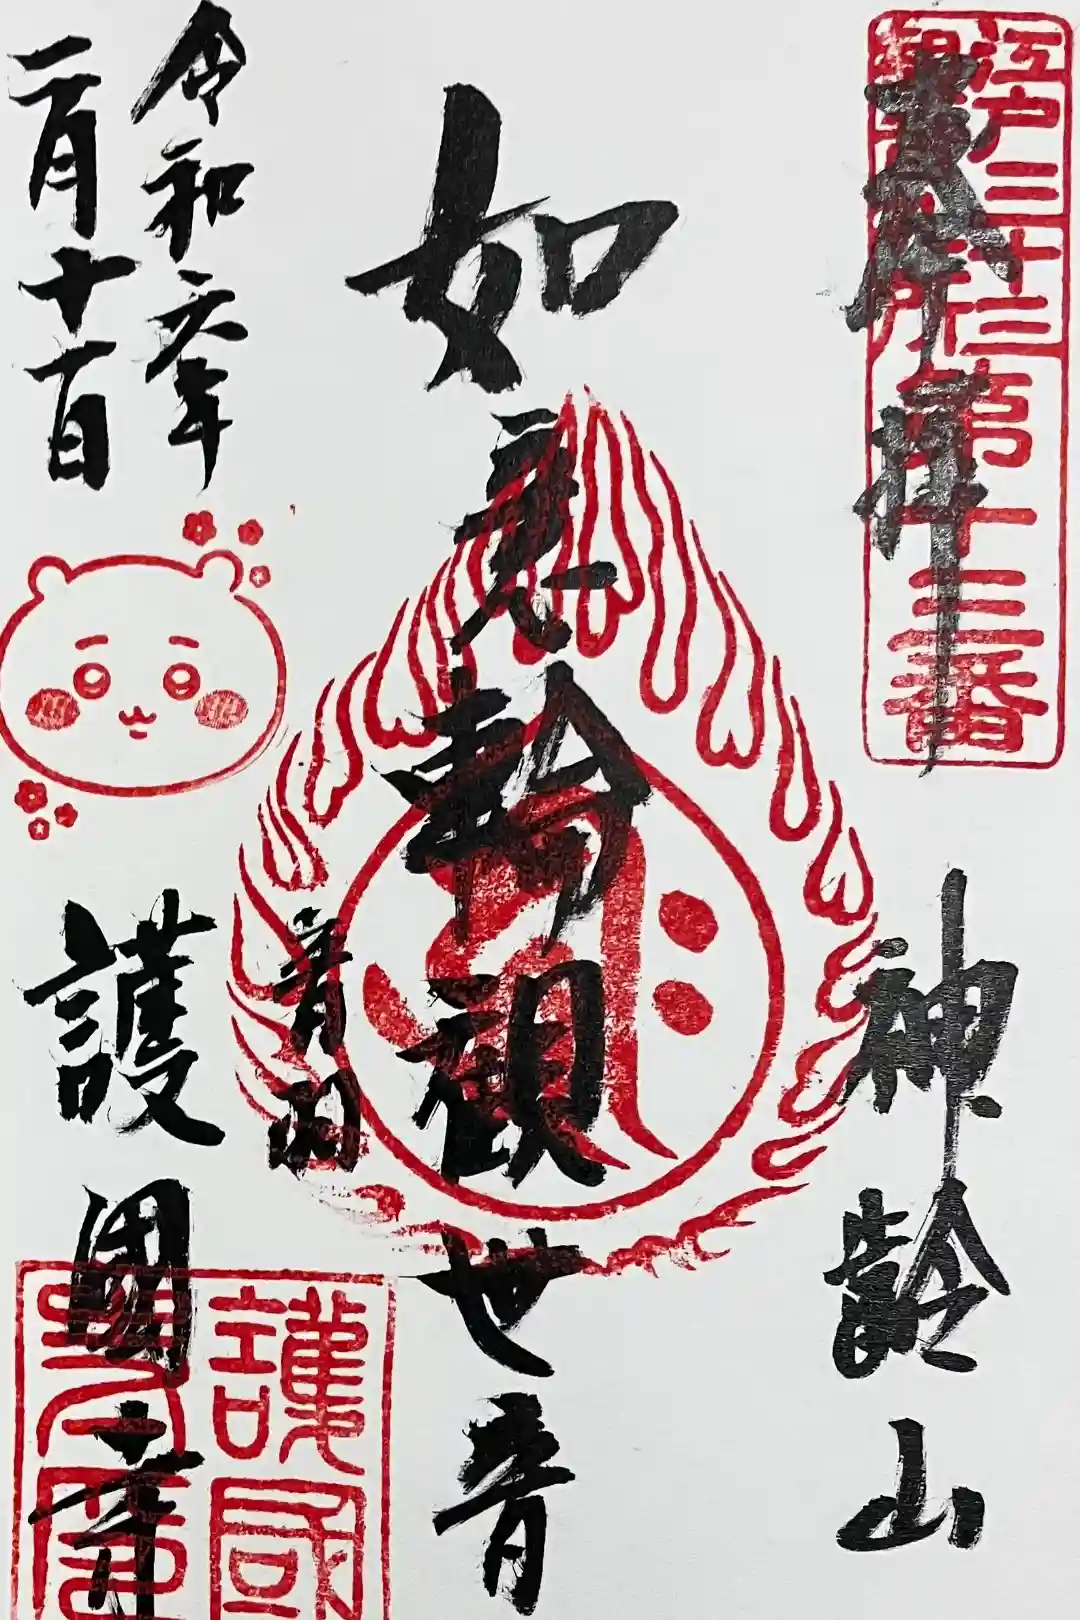 江戸三十三
観音札所
第十三番
拝
神齢山
如意輪観世音
音羽
護國寺
令和六年
二月十一日
護國